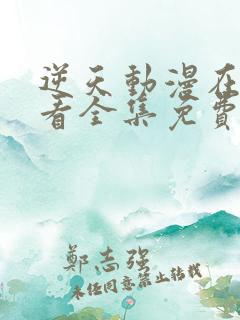 逆天動漫在
看全集免費
鄭志强
未经同意禁止转载